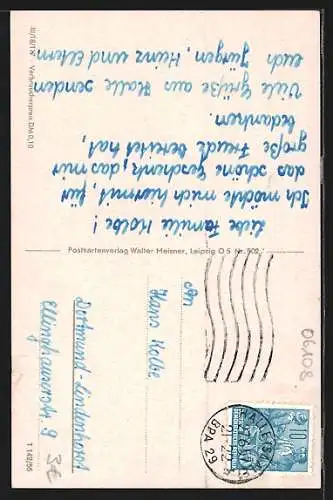 Liebe Familie Kolbe!
Ich möchte mich hiermit, für
das schöne Geschenk, das mir
große Freude bereitet hat,
bedanken.
Viele Grüße aus Halle senden
euch Jürgen, Heinz und Eltern
III/18/17 Verbraucherpreis DM 0,10
Postkartenverlag Walter Meisner, Leipzig O 5 Nr. 502
An
Hans Kolbe
Dortmund-Lindenhorst
Ellinghauserstr. 9
3€
T 142/56
06108
BPA 29
10